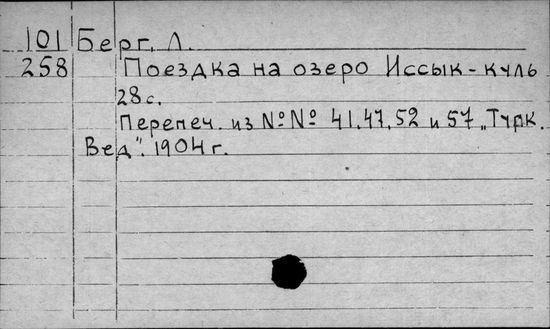 101 Берг, Л.
258 Поездка на озеро Иссык-куль
28 с.
Перепеч. из №№ 41, 47, 52 и 57 „Турк.
Вед". 1904 г.